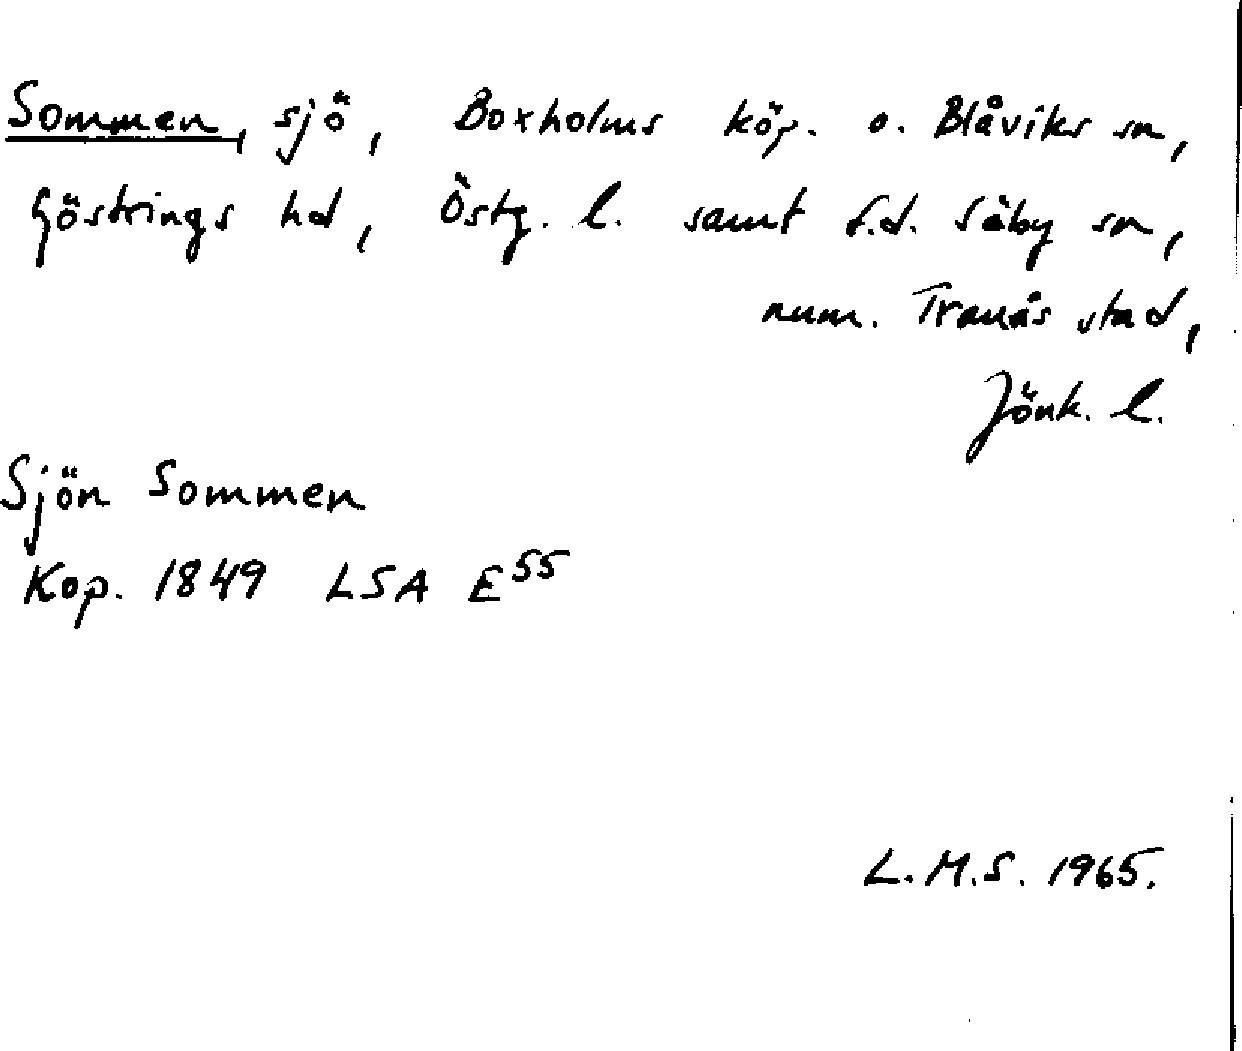 Sommen, sjö, Boxholms köp. o. Blåviks sn,
Göstrings hd, Östg. l. samt f.d. Säby sn,
num. Tranås stad,
Jönk. l.
Sjön Sommen
Kop. 1849 LSA E55
L.M.S. 1965.